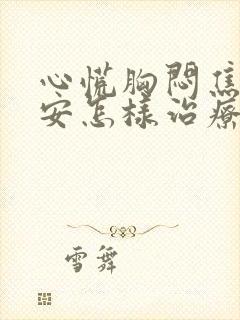 心慌胸闷焦
安怎样治疗
雪舞